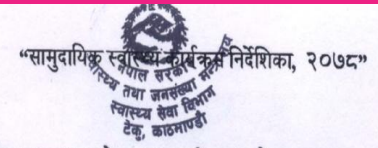 “सामुदायिक स्वास्थ्य कार्यक्रम निर्देशिका, २०७८”
नेपाल सरकार
स्वास्थ्य तथा जनसंख्या मन्त्रालय
स्वास्थ्य सेवा विभाग
टेकु, काठमाण्डौ